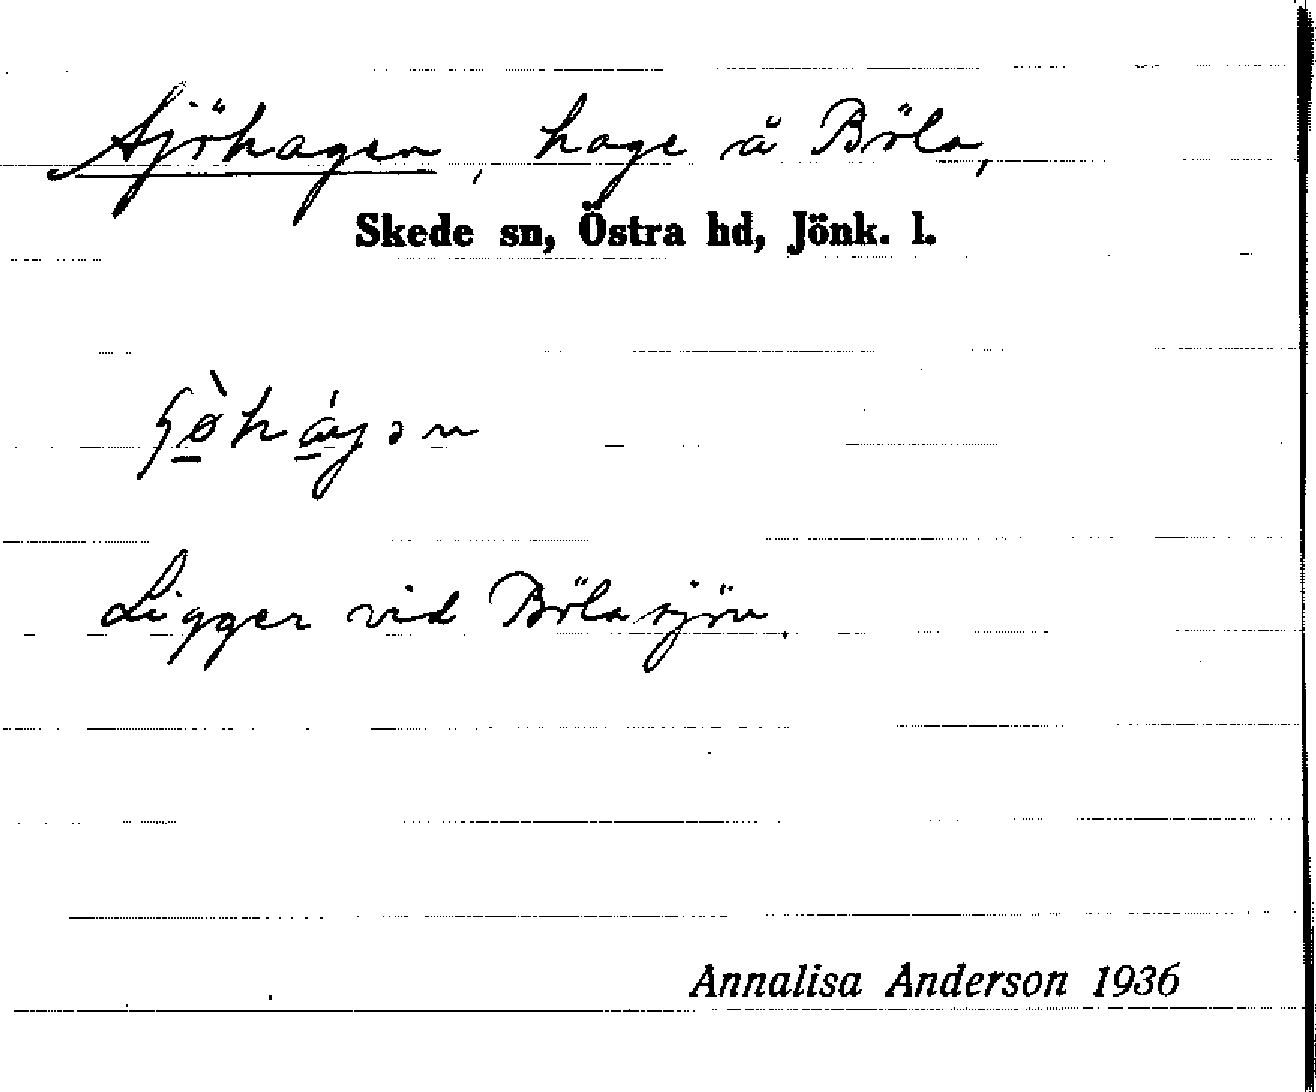 Sjöhagen, hage å Böla,
Skede sn, Östra hd, Jönk. l.
Ligger vid Bölasjön.
Annalisa Anderson 1936